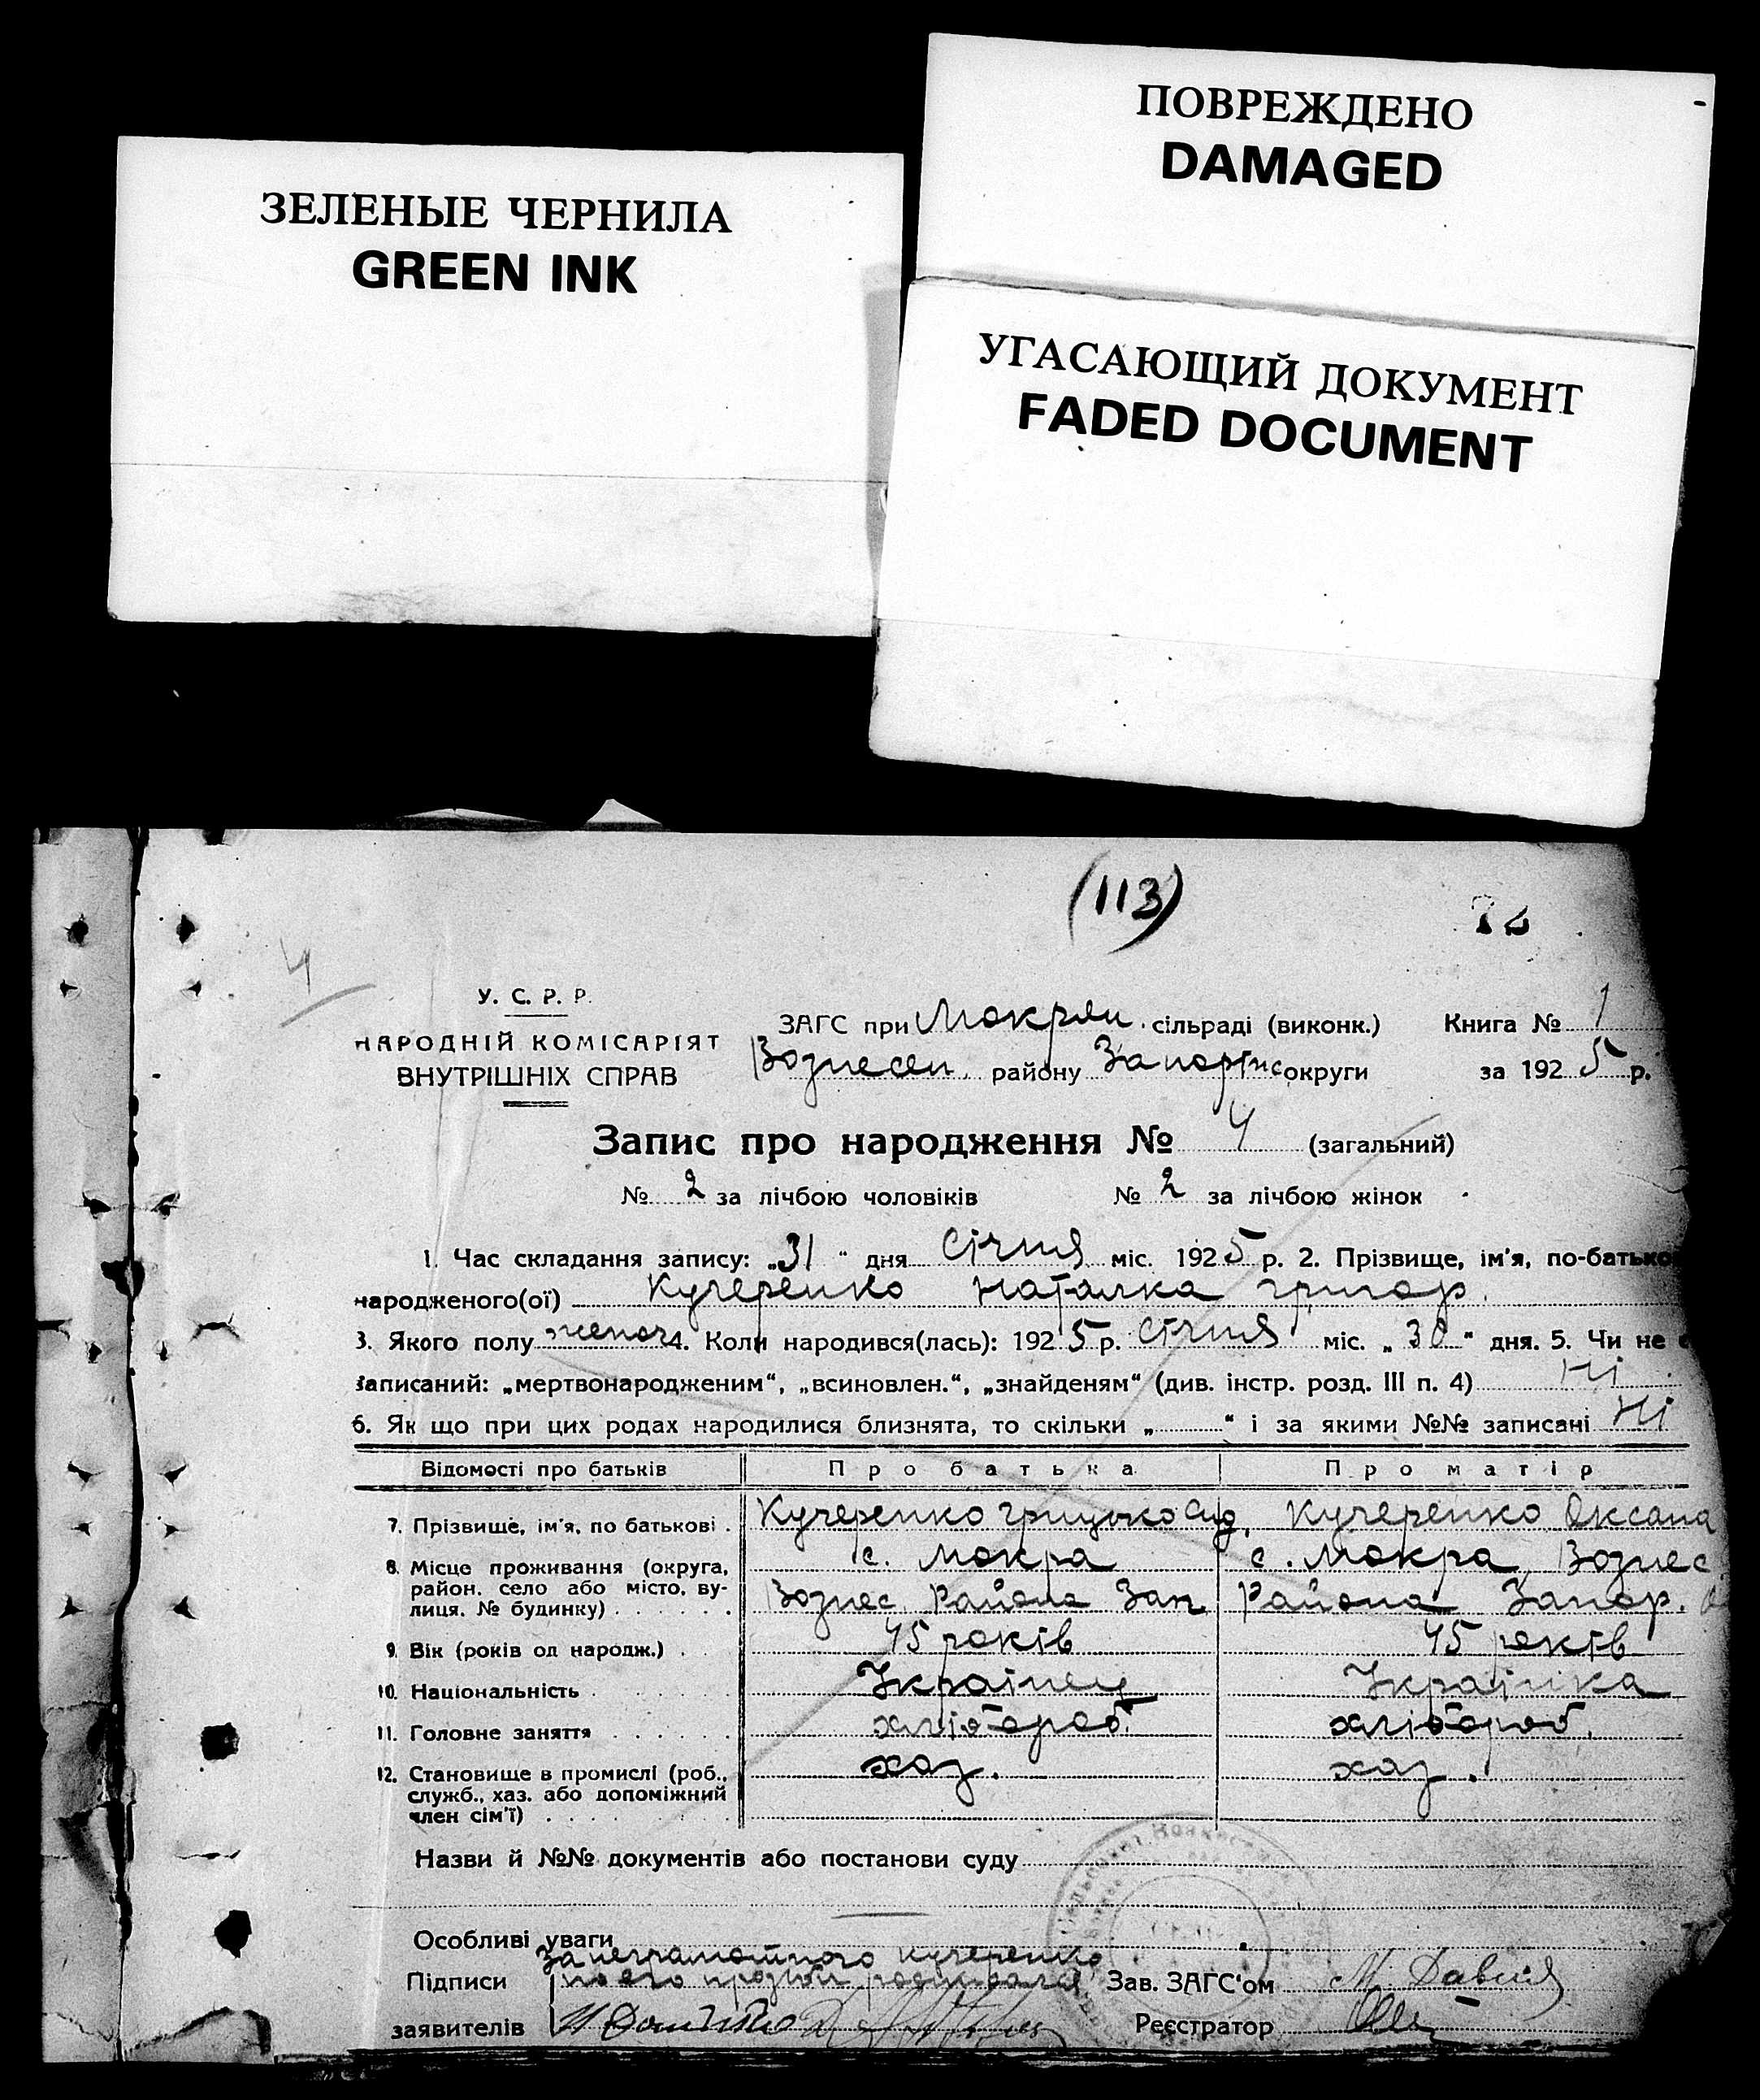 ПОВРЕЖДЕНО
DAMAGED
ЗЕЛЕНЫЕ ЧЕРНИЛА
GREEN INK
УГАСАЮЩИЙ ДОКУМЕНТ
FADED DOCUMENT
(113)
4
У. С. Р. Р.
НАРОДНІЙ КОМІСАРІЯТ
ВНУТРІШНІХ СПРАВ
ЗАГС при Мокрян. сільраді (виконк.) Книга № 1
Вознесен. району Запоріж округи за 1925 р.
Запис про народження № 4 (загальний)
№ 2 за лічбою чоловіків № 2 за лічбою жінок
1. Час складання запису: „31“ дня січня міс. 1925 р. 2. Прізвище, ім'я, по-батько
народженого(ої) Кучеренко Наталка Григор.
3. Якого полу женоч 4. Коли народився(лась): 1925 р. січня міс. „30“ дня. 5. Чи не є
записаний: „мертвонародженим“, „всиновлен.“, „знайденям“ (див. інстр. розд. III п. 4) Ні
6. Як що при цих родах народилися близнята, то скільки „ “ і за якими №№ записані Ні
Відомості про батьків Про батька Про матір
7. Прізвище, ім'я, по батькові . Кучеренко Грицько Сид. Кучеренко Оксана
8. Місце проживання (округа, с. Мокра с. Мокра, Вознес.
район, село або місто, ву-
лиця, № будинку) . . . . . . Вознес. Района Зап Района Запор.
9. Вік (років од народж.) . . 45 років 45 років
10. Національність . . . . . . Українец Українка
11. Головне заняття . . . . . . хлібороб. хлібороб.
12. Становище в промислі (роб., хаз. хаз.
служб., хаз. або допоміжний
член сім'ї) . . . . . . .
Назви й №№ документів або постанови суду
Особливі уваги
За неграмотного Кучеренко
Підписи по его прозьби Зав. ЗАГС'ом М.
заявителів Реєстратор